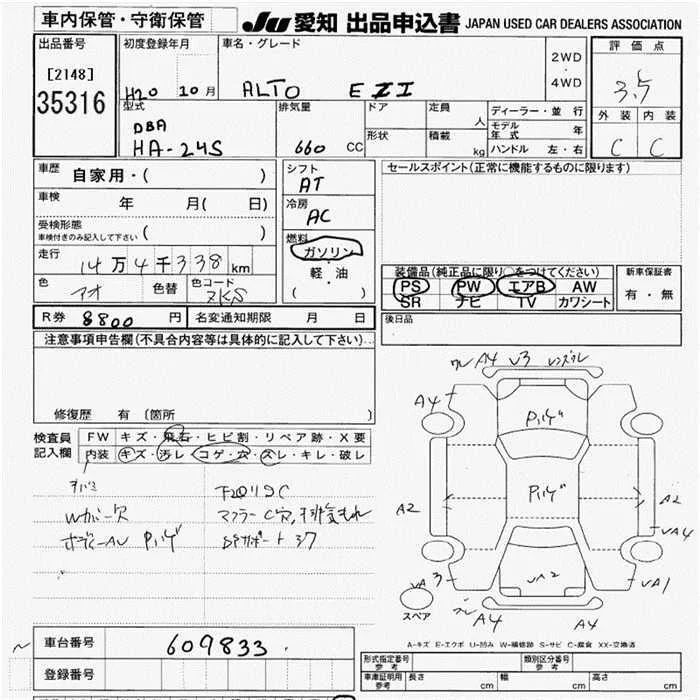 車内保管・守衛保管
JU 愛知 出品申込書 JAPAN USED CAR DEALERS ASSOCIATION
出品番号
[2148]
35316
初度登録年月
H20 10月
車名・グレード
ALTO
2WD
・
4WD
評価点
3.5
外装 内装
C C
型式
DBA
HA-24S
排気量
660 CC
ドア
形状
定員
人
積載
kg
ディーラー・並行
モデル年式 年
ハンドル 左・右
車歴
自家用・( )
車検
年 月( 日)
受検形態
車検付きのみ記入して下さい ( )
走行
14万4千338km
色
アオ
色替
色コード
ZKS
シフト
AT
冷房
AC
燃料
ガソリン
・
軽・油
( )
セールスポイント(正常に機能するものに限ります)
装備品(純正品に限り○をつけてください)
PS PW エアB AW
SR ナビ TV カワシート
新車保証書
有・無
後日品
R券 8800 円
名変通知期限 月 日
注意事項申告欄(不具合内容等は具体的に記入して下さい)
修復歴 有 〔箇所 〕
検査員
記入欄
FW キズ・飛石・ヒビ割・リペア跡・X要
内装 キズ・汚レ・コゲ・穴・スレ・キレ・破レ
A4 V3
A4 A4
A2 A2
VA4
VA2
VA1
A4 A4
スペア
A-キズ E-エクボ U-凹み W-補修跡 S-サビ C-腐食 XX-交換済
車台番号
609833
登録番号
形式指定番号
参考
類別区分番号
参考
車庫証明用
参考
長さ cm 幅 cm 高さ cm